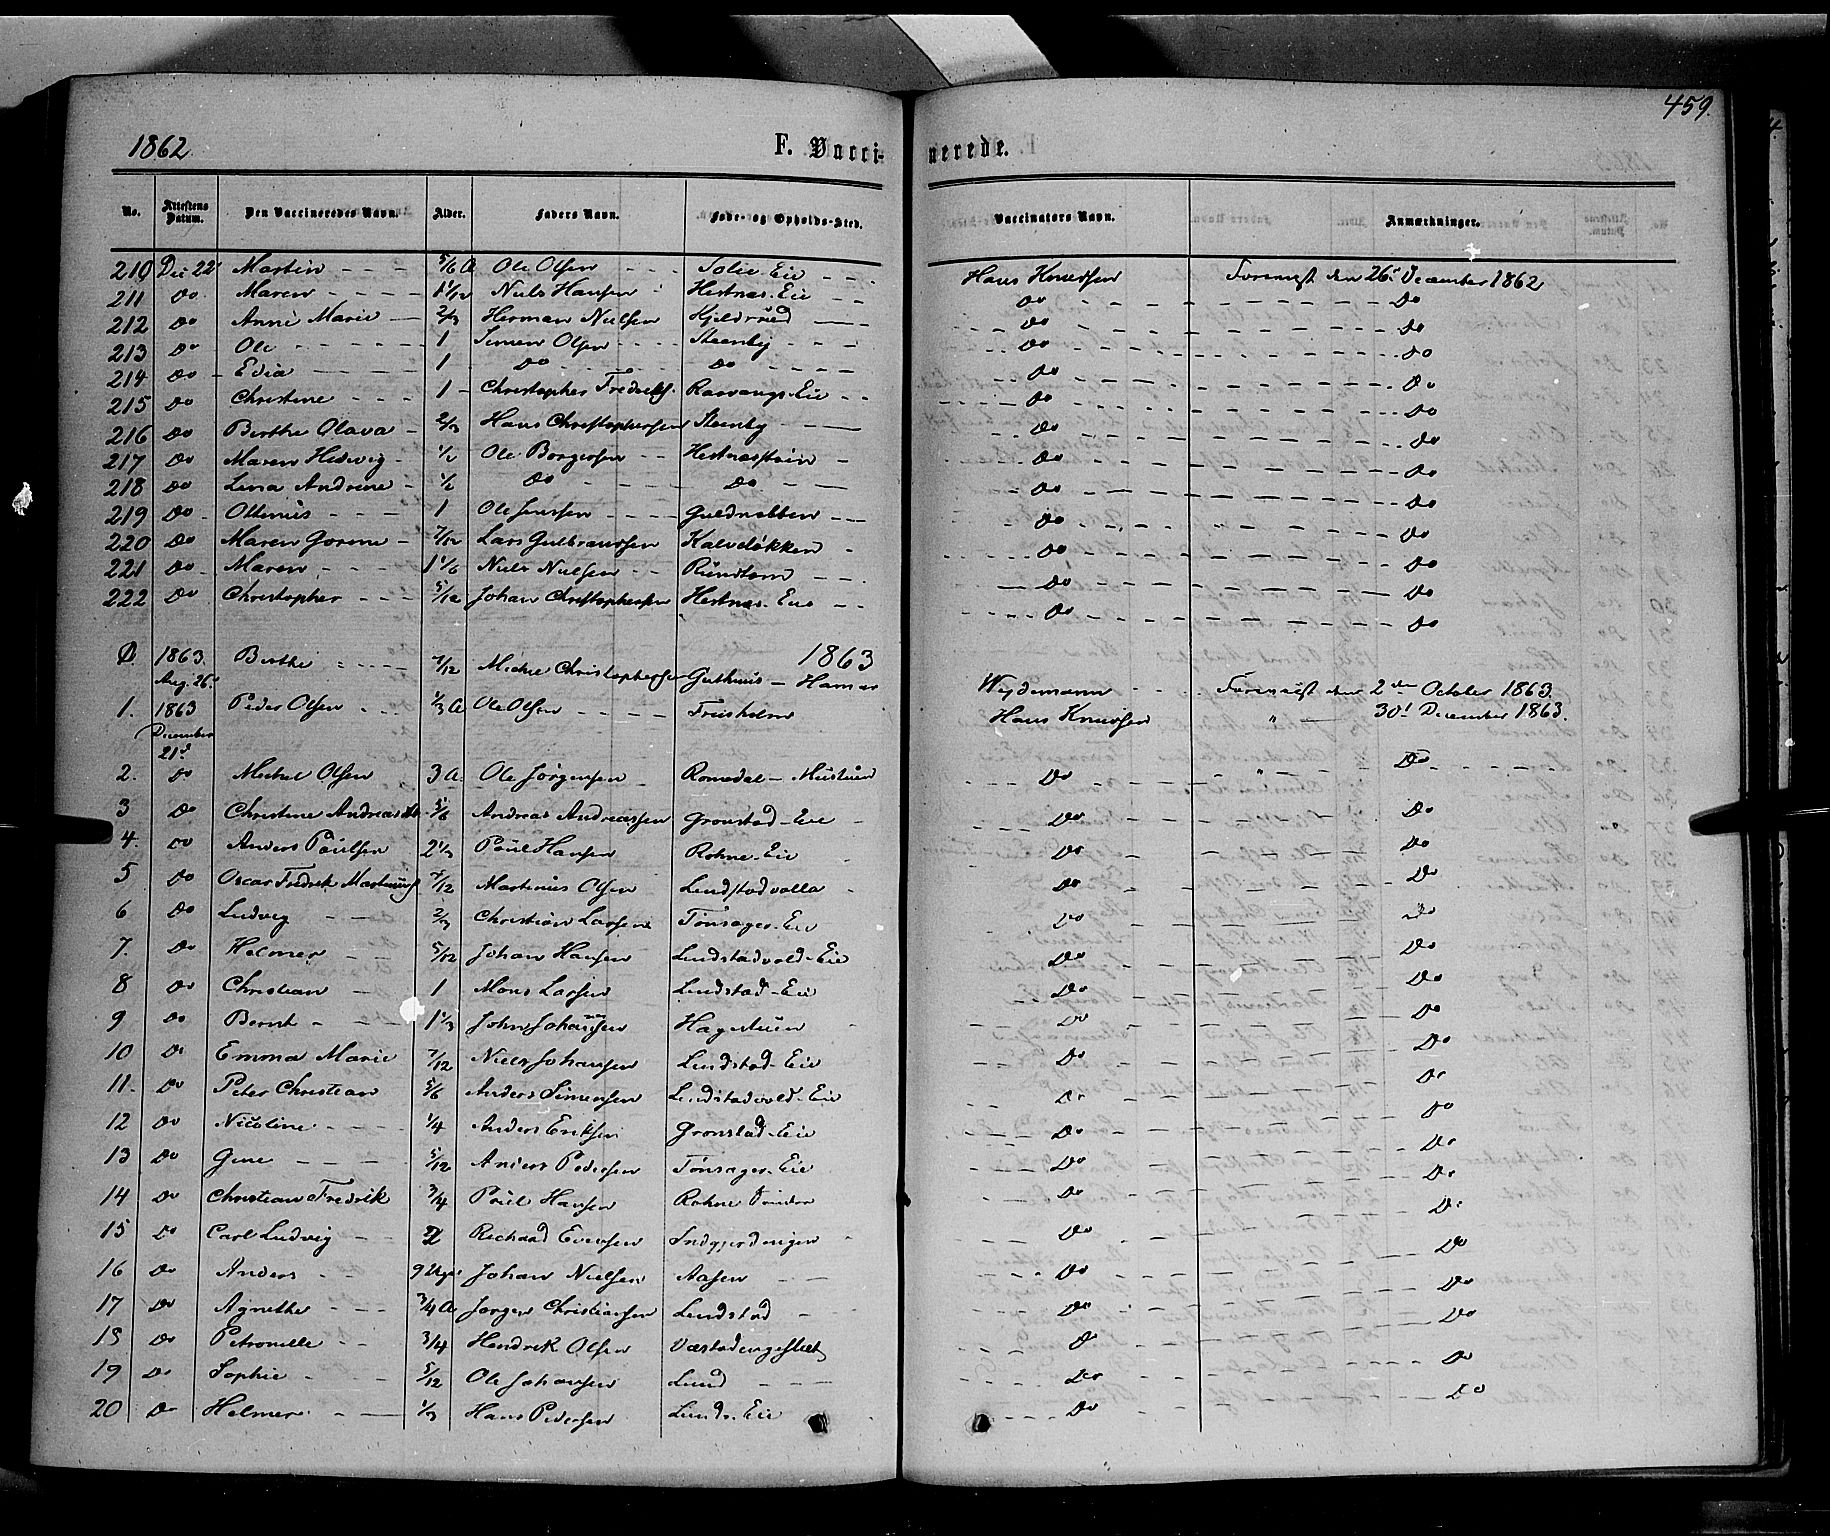 459.
1862 F. Vaccinerede.
No. Attestens Datum. Den Vaccineredes Navn. Alder. Faders Navn. Føde- og Opholds-Sted. Vaccinators Navn. Anmærkninger.
210 Dec 22 Martin 5/6 A Ole Olsen Solie-Eie Hans Knudsen Foreviist den 26' December 1862
211 Do Maren 1 1/12 Niels Hansen Hestnæs-Eie Do Do
212 Do Anne Marie 2/3 Herman Nielsen Kjeldsrud Do Do
213 Do Ole 1 Simen Olsen Steenby Do Do
214 Do Edia 1 Do Do Do Do
215 Do Christine 1 Christopher Fredriks. Rosvangs-Eie Do Do
216 Do Berthe Olava 2/3 Hans Christophersen Steenby Do Do
217 Do Maren Hedevig 1/2 Ole Borgersen Do Do
218 Do Lina Andrine 1/2 Do Do Do Do
219 Do Ottenius 1 Ole Jenssen Guldnabben Do Do
220 Do Maren Gorine 7/12 Lars Gulbranssen Kalveløkken Do Do
221 Do Maren 1 1/6 Niels Nielsen Rundtom Do Do
222 Do Christopher 5/12 Johan Christophersen Hestnæs-Eie Do Do
1863
1863. Aug. 26' Berthe 7/12 Michel Christophersen Guthuus - Hamar Weydemann Foreviist den 2den October 1863.
1. 1863 December 21' Peder Olsen 1/3 A Ole Olsen Friisholm Hans Knudsen " 30' December 1863.
2. Do Michel Olsen 3 A. Ole Jørgensen Romedal - Do " Do
3 Do Christine Andreasd. 5/6 Andreas Andreassen Gronstad-Eie Do Do
4. Do Anders Poulsen 2 1/3 Poul Hansen Rohne-Eie Do Do
5 Do Oscar Fredrik Martinius 7/12 Martinius Olsen Lundstadvolla Do Do
6 Do Ludvig 2/3 Christian Larsen Tønsager-Eie Do Do
7. Do Helmer 5/12 Johan Hansen Lundstadvold-Eie Do Do
8 Do Christian 1 Mons Larsen Lundstad-Eie Do Do
9 Do Bernt 1 1/3 John Johannesen Hagestuen Do Do
10 Do Emma Marie 7/12 Niels Johansen Lundstad-Eie Do Do
11. Do Peter Christian 5/6 Anders Simensen Lundstadvold-Eie Do Do
12 Do Nicoline 1/4 Anders Eriksen Gronstad-Eie Do Do
13 Do Gine 5/12 Anders Pedersen Tønsager-Eie Do Do
14 Do Christian Fredrik 3/4 Poul Hansen Rohne Do Do
15 Do Carl Ludvig 2 Richard Evensen Indgjerdingen Do Do
16 Do Anders 9 Uger Johan Nielsen Aasen Do Do
17 Do Agnethe 3/4 A Jørgen Christiansen Lundstad Do Do
18 Do Petronelle 3/4 Hendrik Olsen Væstadengeslet Do Do
19 Do Sophie 5/12 Ole Johansen Lund Do Do
20 Do Helmer 1/3 Hans Pedersen Lunds-Eie Do Do